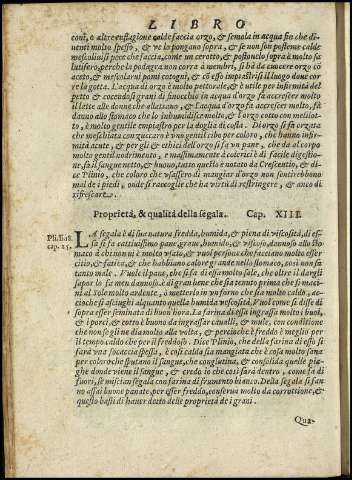 LIBRO
coni, o altre enfiagione calde faccia orzo, & semola in acqua fin che di-
uenti molto spesso, & ve lo pongano sopra, & se non son posteme calde
mescolinui pece che faccia, come un cerotto, & postouelo sopra è molto sa
lutifero, perche la podagra non corra à membri, si hà da cuocere orzo cõ
aceto, & mescolarui pomi cotogni, & cõ esso impiastrisi il luogo doue cor
re la gotta. L'acqua di orzo è molto pettorale, & è utile per infirmità del
petto & cocendosi grani di finocchio in acqua d'orzo fa accrescer molto
il lette alle donne che allattano, & L'acqua d'orzo fa accrescer molto, fà
danno allo stomaco che lo inhumidisce molto, & l'orzo cotto con mellilo-
to, è molto gentile empiastro per la doglia di costa. Di orzo si fà orzata
che meschiata con zuccaro è vn gentil cibo per coloro, che hanno infir-
mità acute, & per gli & ethici dell'orzo si fà vn pane, che da al corpo
molto gentil nodrimento, e massimamente à colerici è di facile digestio-
ne, fa il sangue netto, & buono, tutto questo è notato da Crescentio, & di-
ce Plinio, che coloro che vsassero di mangiar d'orzo non sentirebbono
mal de i piedi, onde si raccoglie che ha virtù di restringere, & anco di
rifrescare.
Proprietà, & qualità della segala. Cap. XIII.
Pli.li.18.
cap. 25.
LA segala è di sua natura fredda, humida, & piena di viscosità, di es-
sa si fa cattiuissimo pane, graue, humido, & viscoso, dannoso allo sto
maco à chi non vi è molto vsato, & vuol persone che facciano molto esser
citio, & fatica, & che habbiano calore grande nello stomaco, così non fa
tanto male. Vuole il pane, che si fa di essa molto sale, che oltre il dargli
sapor lo fa men dannoso. è di gran bene che sia tenuto prima che si maci-
ni al Sole molto ardente, ò metterlo in vn forno che sia molto caldo, ac-
cioche si asciughi alquanto quella humida viscosità. Vuol come si disse di
sopra esser seminata di buon'hora. La farina di essa ingrassa molto i buoi,
& i porci, & cotto è buono da ingrassar caualli, & mule, con conditione
che non se gli ne dia molto alla volta, & percioche è freddo è meglio per
il tempo caldo che per il freddoso. Dice Plinio, che della farina di esso si
farà vna focaccia spessa, è così calda sia mangiata che è cosa molto sana
per coloro che sputano il sangue, che consulatina, & consolida quelle pia-
ghe donde viene il sangue, & credo io che così farà dentro, come fa di
fuori, se miscian segala con farina di frumento bianco. Della segala si fan
no assai buone panate, per esser freddo, conserua molto da corrottione, &
questo basti di hauer detto delle proprietà de i grani.
Qua-